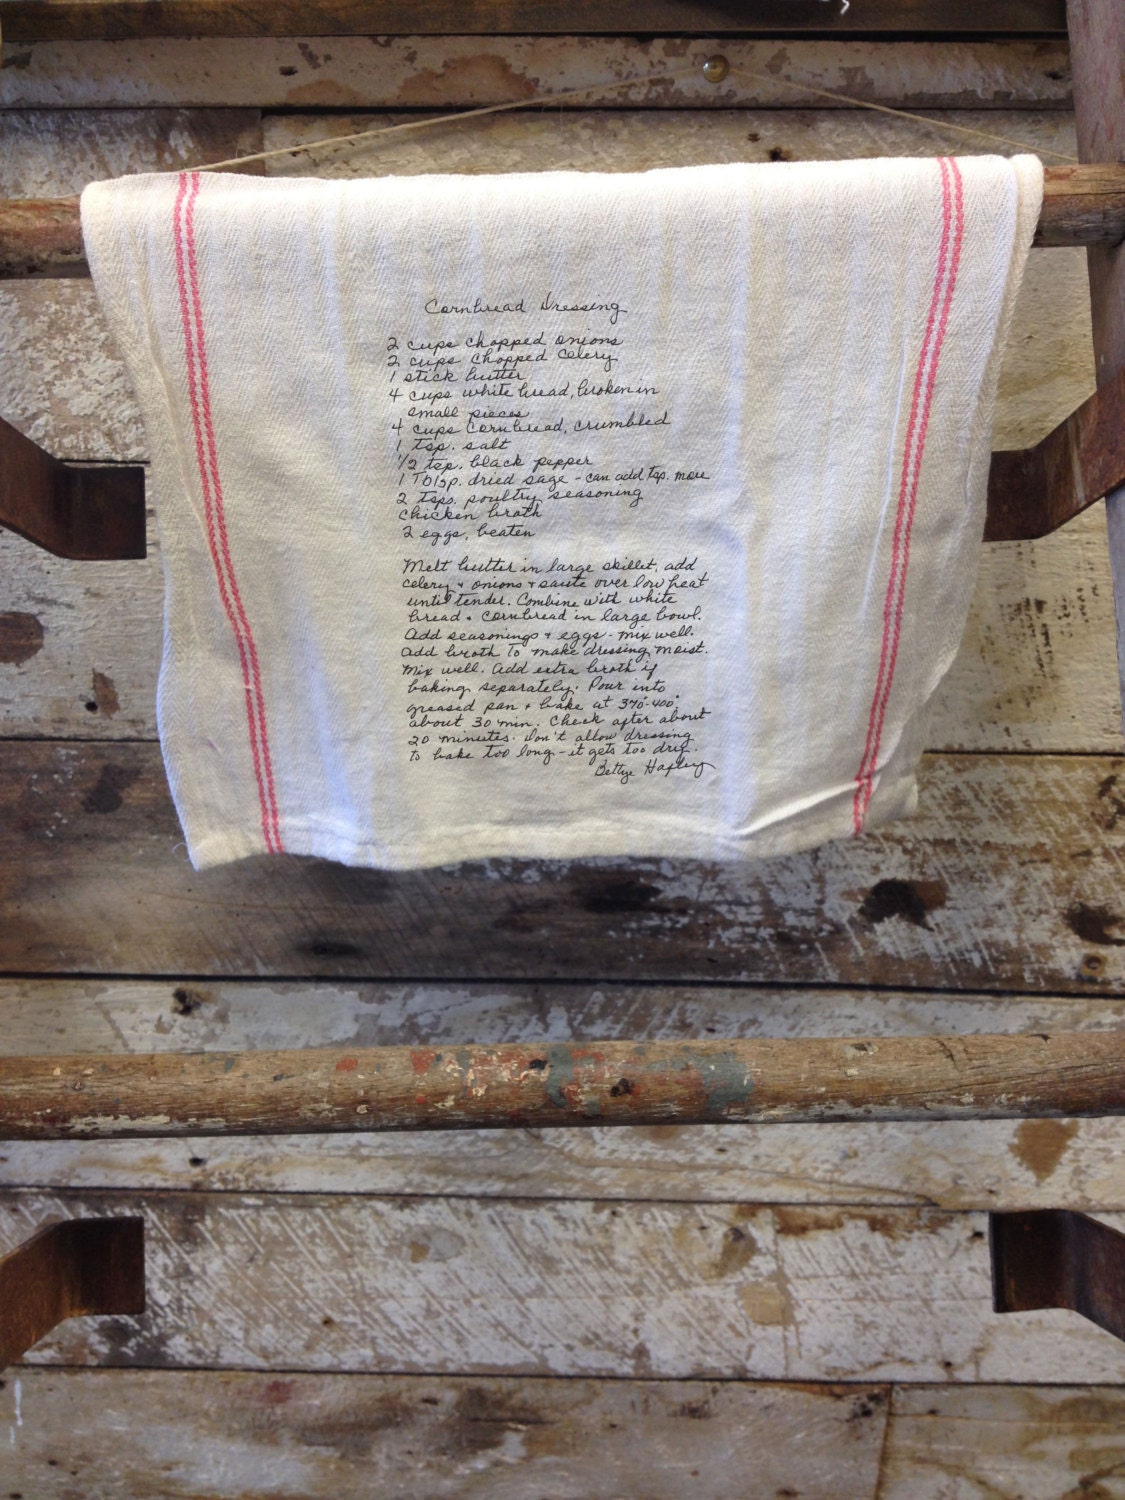 Cornbread Dressing
2 cups chopped onions
2 cups chopped celery
1 stick butter
4 cups white bread, broken in
small pieces
4 cups cornbread, crumbled
1 tsp. salt
1/2 tsp. black pepper
1 Tblsp. dried sage - can add tsp. more
2 tsps. poultry seasoning
chicken broth
2 eggs, beaten
Melt butter in large skillet, add
celery + onions + saute over low heat
until tender. Combine with white
bread + cornbread in large bowl.
Add seasonings + eggs - mix well.
Add broth to make dressing moist.
Mix well. Add extra broth if
baking separately. Pour into
greased pan + bake at 370°-400°
about 30 min. Check after about
20 minutes. Don't allow dressing
to bake too long - it gets too dry.
Bettye